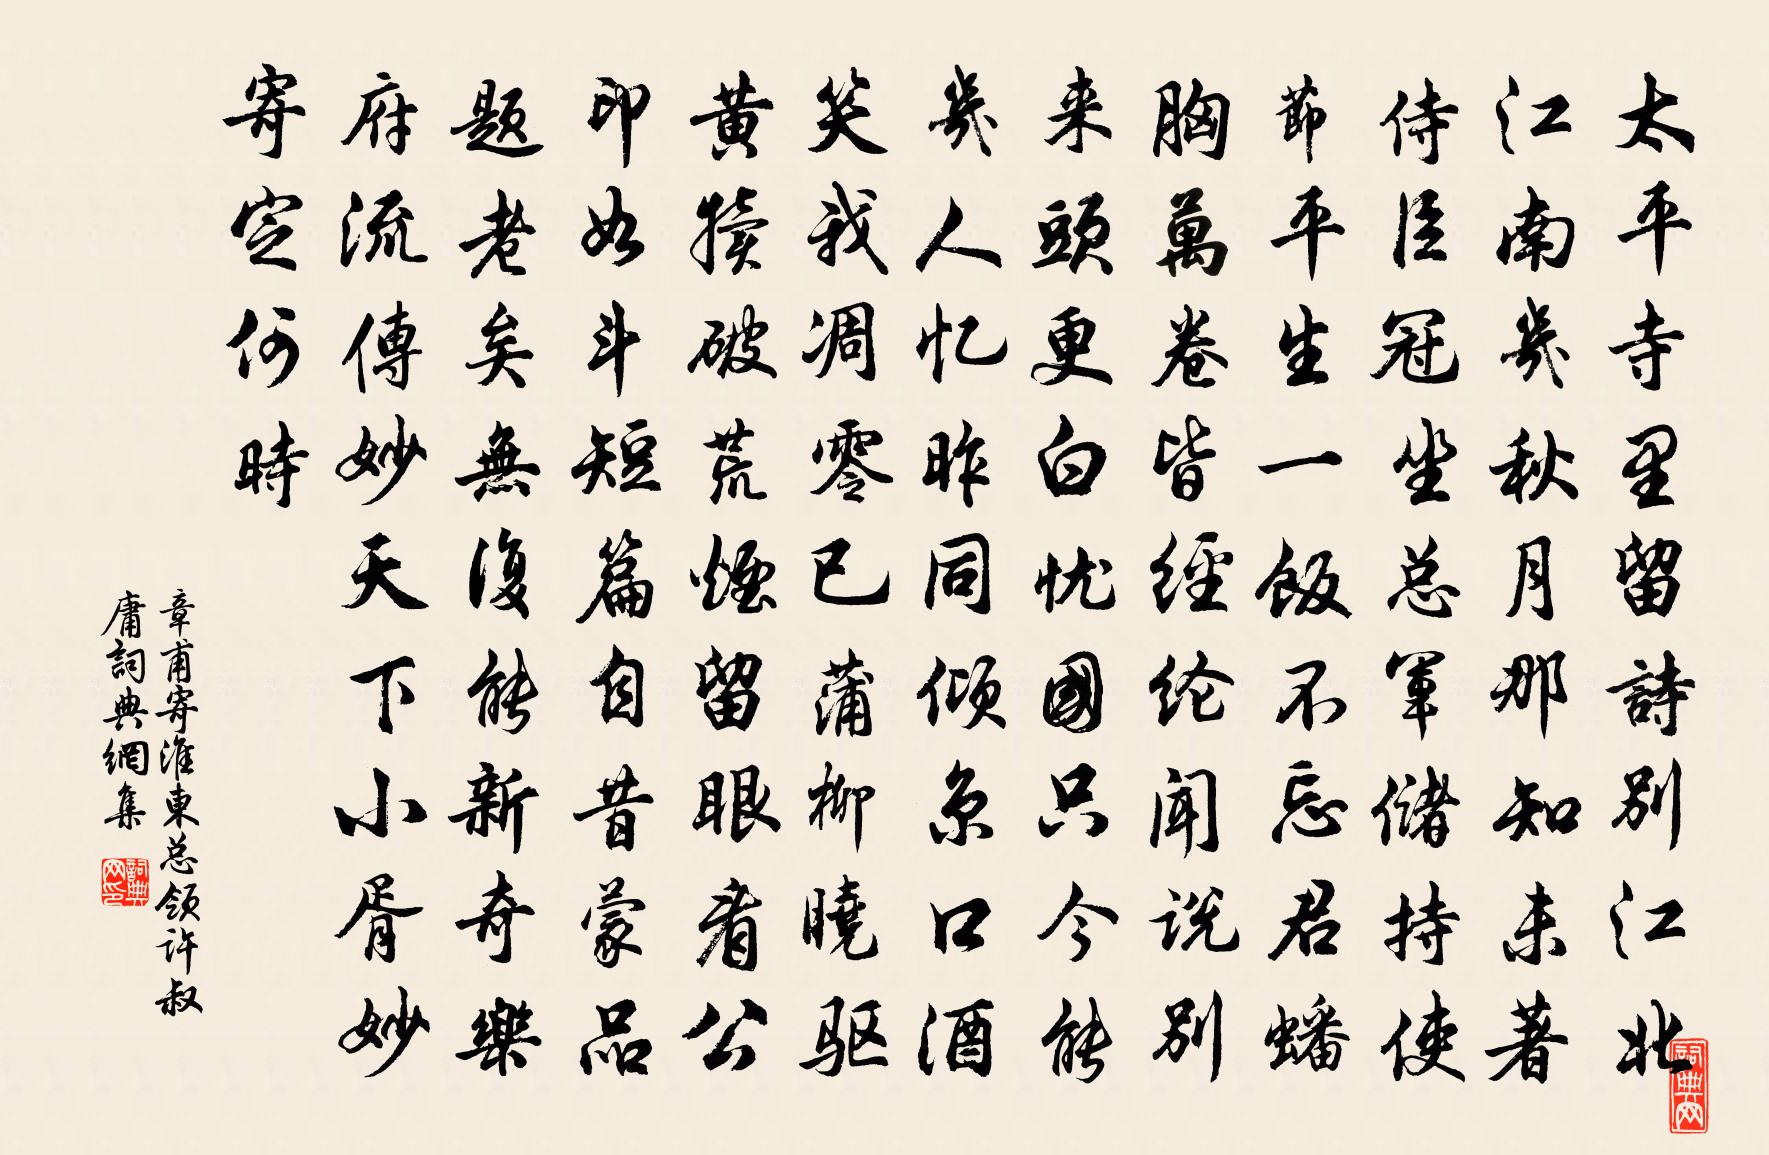 太平寺里留詩別江北
江南幾秋月那知未著
侍臣冠坐总軍儲持使
節平生一飯不忘君蟠
胸萬卷皆經纶闻说別
来頭更白忧國只今能
幾人忆昨同倾京口酒
笑我凋零已蒲柳曉驱
黄犢破荒煙留眼看公
印如斗短篇自昔蒙品
题老矣無復能新奇樂
府流傳妙天下小胥妙
寄定何時
章甫寄淮東总领许叔
庸詞典網集
詞典网印
詞典网